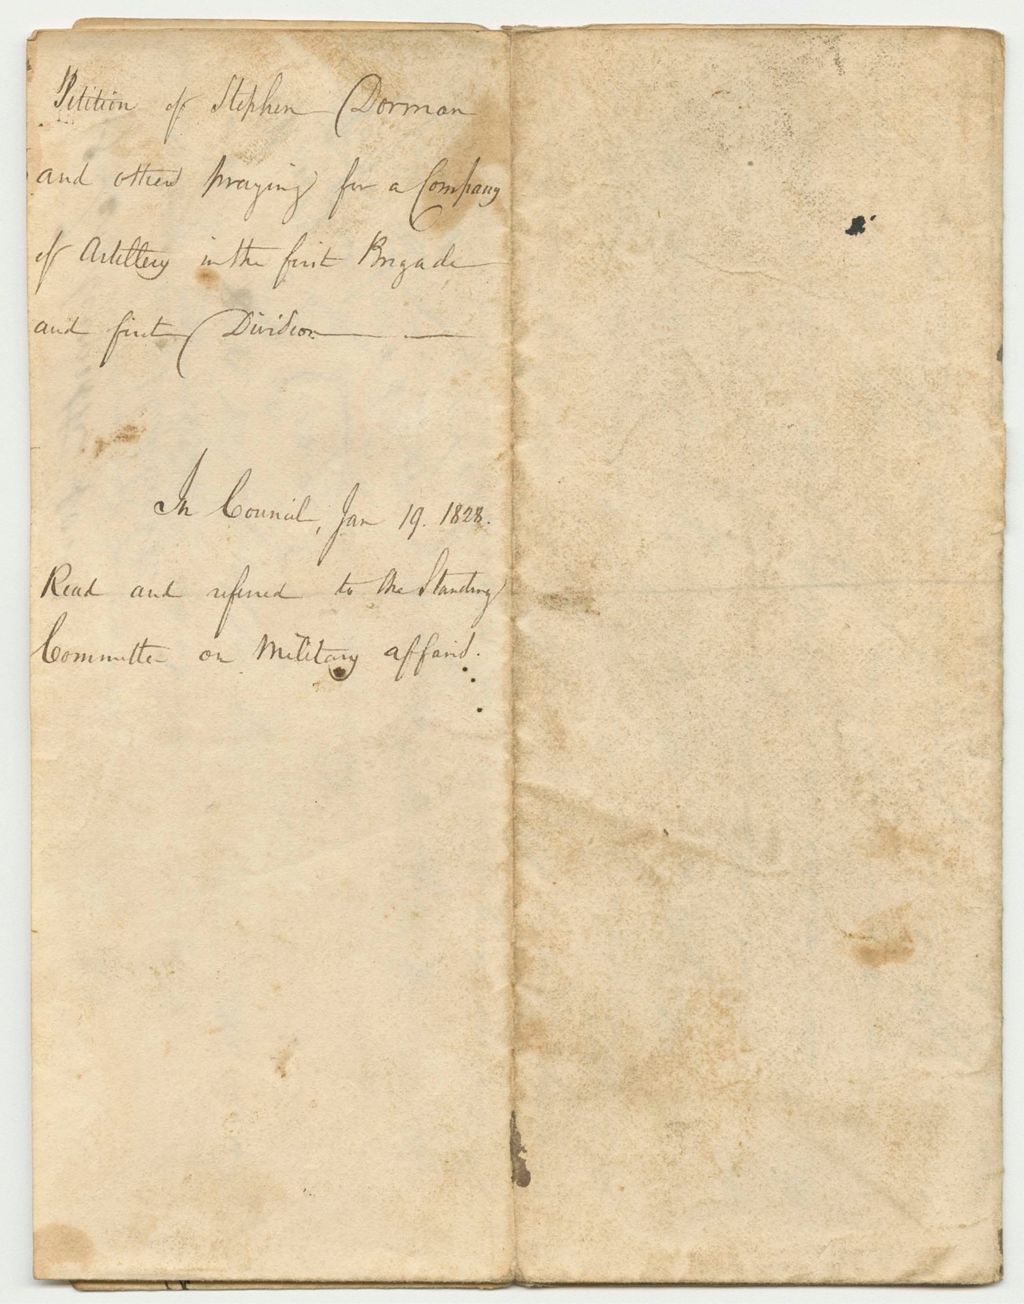 Petition of Stephen Dorman
and others praying for a Company
of Artillery in the first Brigade
and first Division
In Council, Jan 19. 1828.
Read and referred to the Standing
Committee on Military affairs.